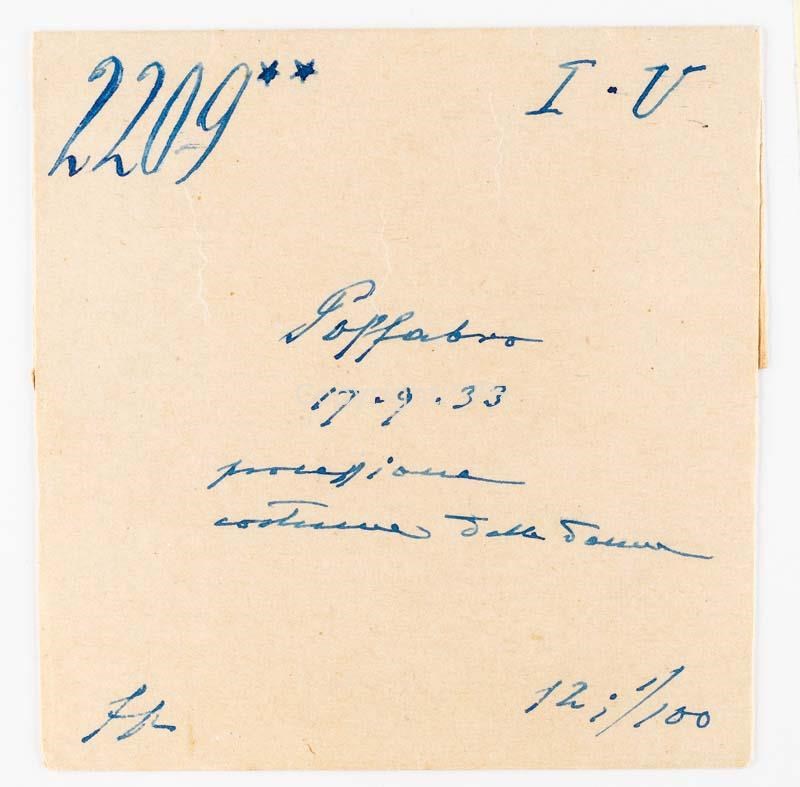 2209** I · V
Poffabro
17 · 9 · 33
processione
costume delle donne
fp 12 ; 1/100